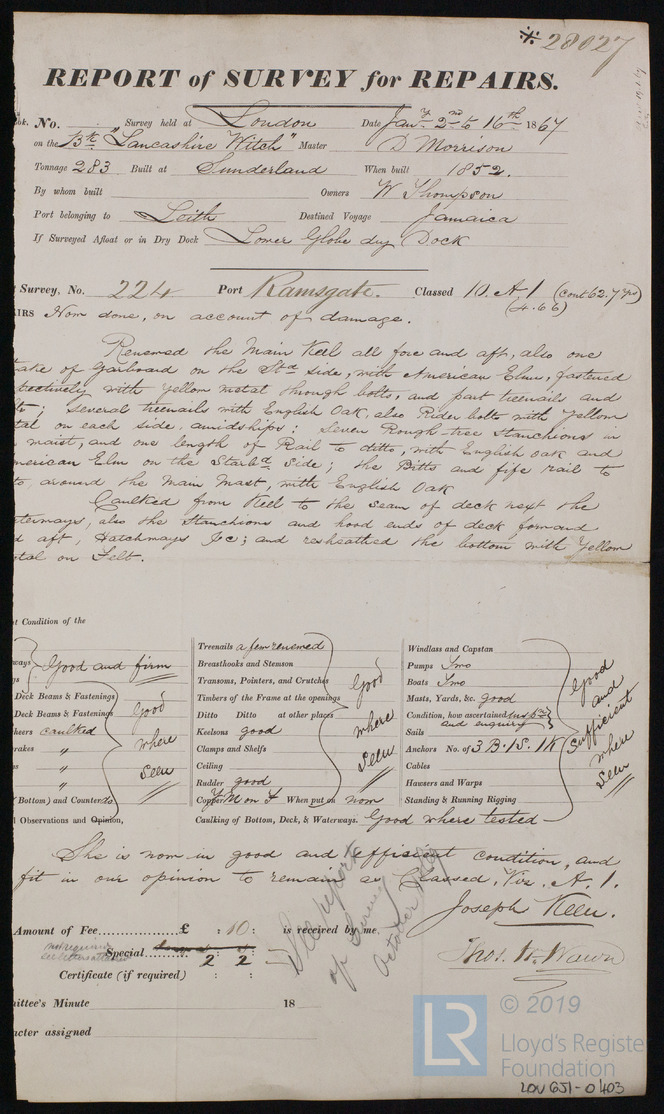 * 28027
REPORT of SURVEY for REPAIRS.
No. Survey held at London Date Jany 2nd to 16th 1867
on the Bk "Lancashire Witch" Master D Morrison
Tonnage 283 Built at Sunderland When built 1852.
By whom built Owners W Thompson
Port belonging to Leith Destined Voyage Jamaica
If Surveyed Afloat or in Dry Dock Lower Globe dry Dock
Survey, No. 224 Port Ramsgate. Classed 10. A.1 (Cont 62.7 yrs)
(4.66)
IRS Now done, on account of damage.
Renewed the Main Keel all fore and aft, also one
take of Garboard on the Std side, with American Elm, fastened
ectively with yellow metal through bolts, and part treenails and
lts; Several treenails with English Oak, also Rider bolts with Yellow
tal on each side amidships: Seven Rough-tree Stanchions in
waist, and one length of Rail to ditto, with English oak and
merican Elm on the Starbd Side; the Bitts and fife rail to
to around the Main Mast, with English Oak
Caulked from Keel to the seam of deck next the
terways, also the Stanchions and hood ends of deck forward
d aft, Hatchways &c; and resheathed the bottom with Yellow
etal on Felt.
nt Condition of the
ways Good and firm
Deck Beams & Fastenings
Deck Beams & Fastenings Good
heers caulked
rakes " where
"
" Seen
(Bottom) and Counter do
l Observations and Opinion,
Treenails a few renewed
Breasthooks and Stemson
Transoms, Pointers, and Crutches Good
Timbers of the Frame at the openings
Ditto Ditto at other places where
Keelsons good
Clamps and Shelfs Seen
Ceiling
Rudder good
Copper YM on F When put on now
Caulking of Bottom, Deck, & Waterways. Good where tested
Windlass and Capstan
Pumps Two
Boats Two
Masts, Yards, &c. good
Condition, how ascertained
and enquiry
Sails
Anchors No. of 3 B. 1S. 1K
Cables
Hawsers and Warps
Standing & Running Rigging
Good and Sufficient where Seen
She is now in good and efficient condition, and
fit in our opinion to remain as Classed. Viz. A.1.
Joseph Keen.
Thos. W. Wawn
Amount of Fee £ : 10 : is received by me,
Special 2 : 2 : —
Certificate (if required) : :
See report
of Survey
October
ittee's Minute 18
acter assigned
© 2019
LR
Lloyd's Register
Foundation
LOU GSI - 0403